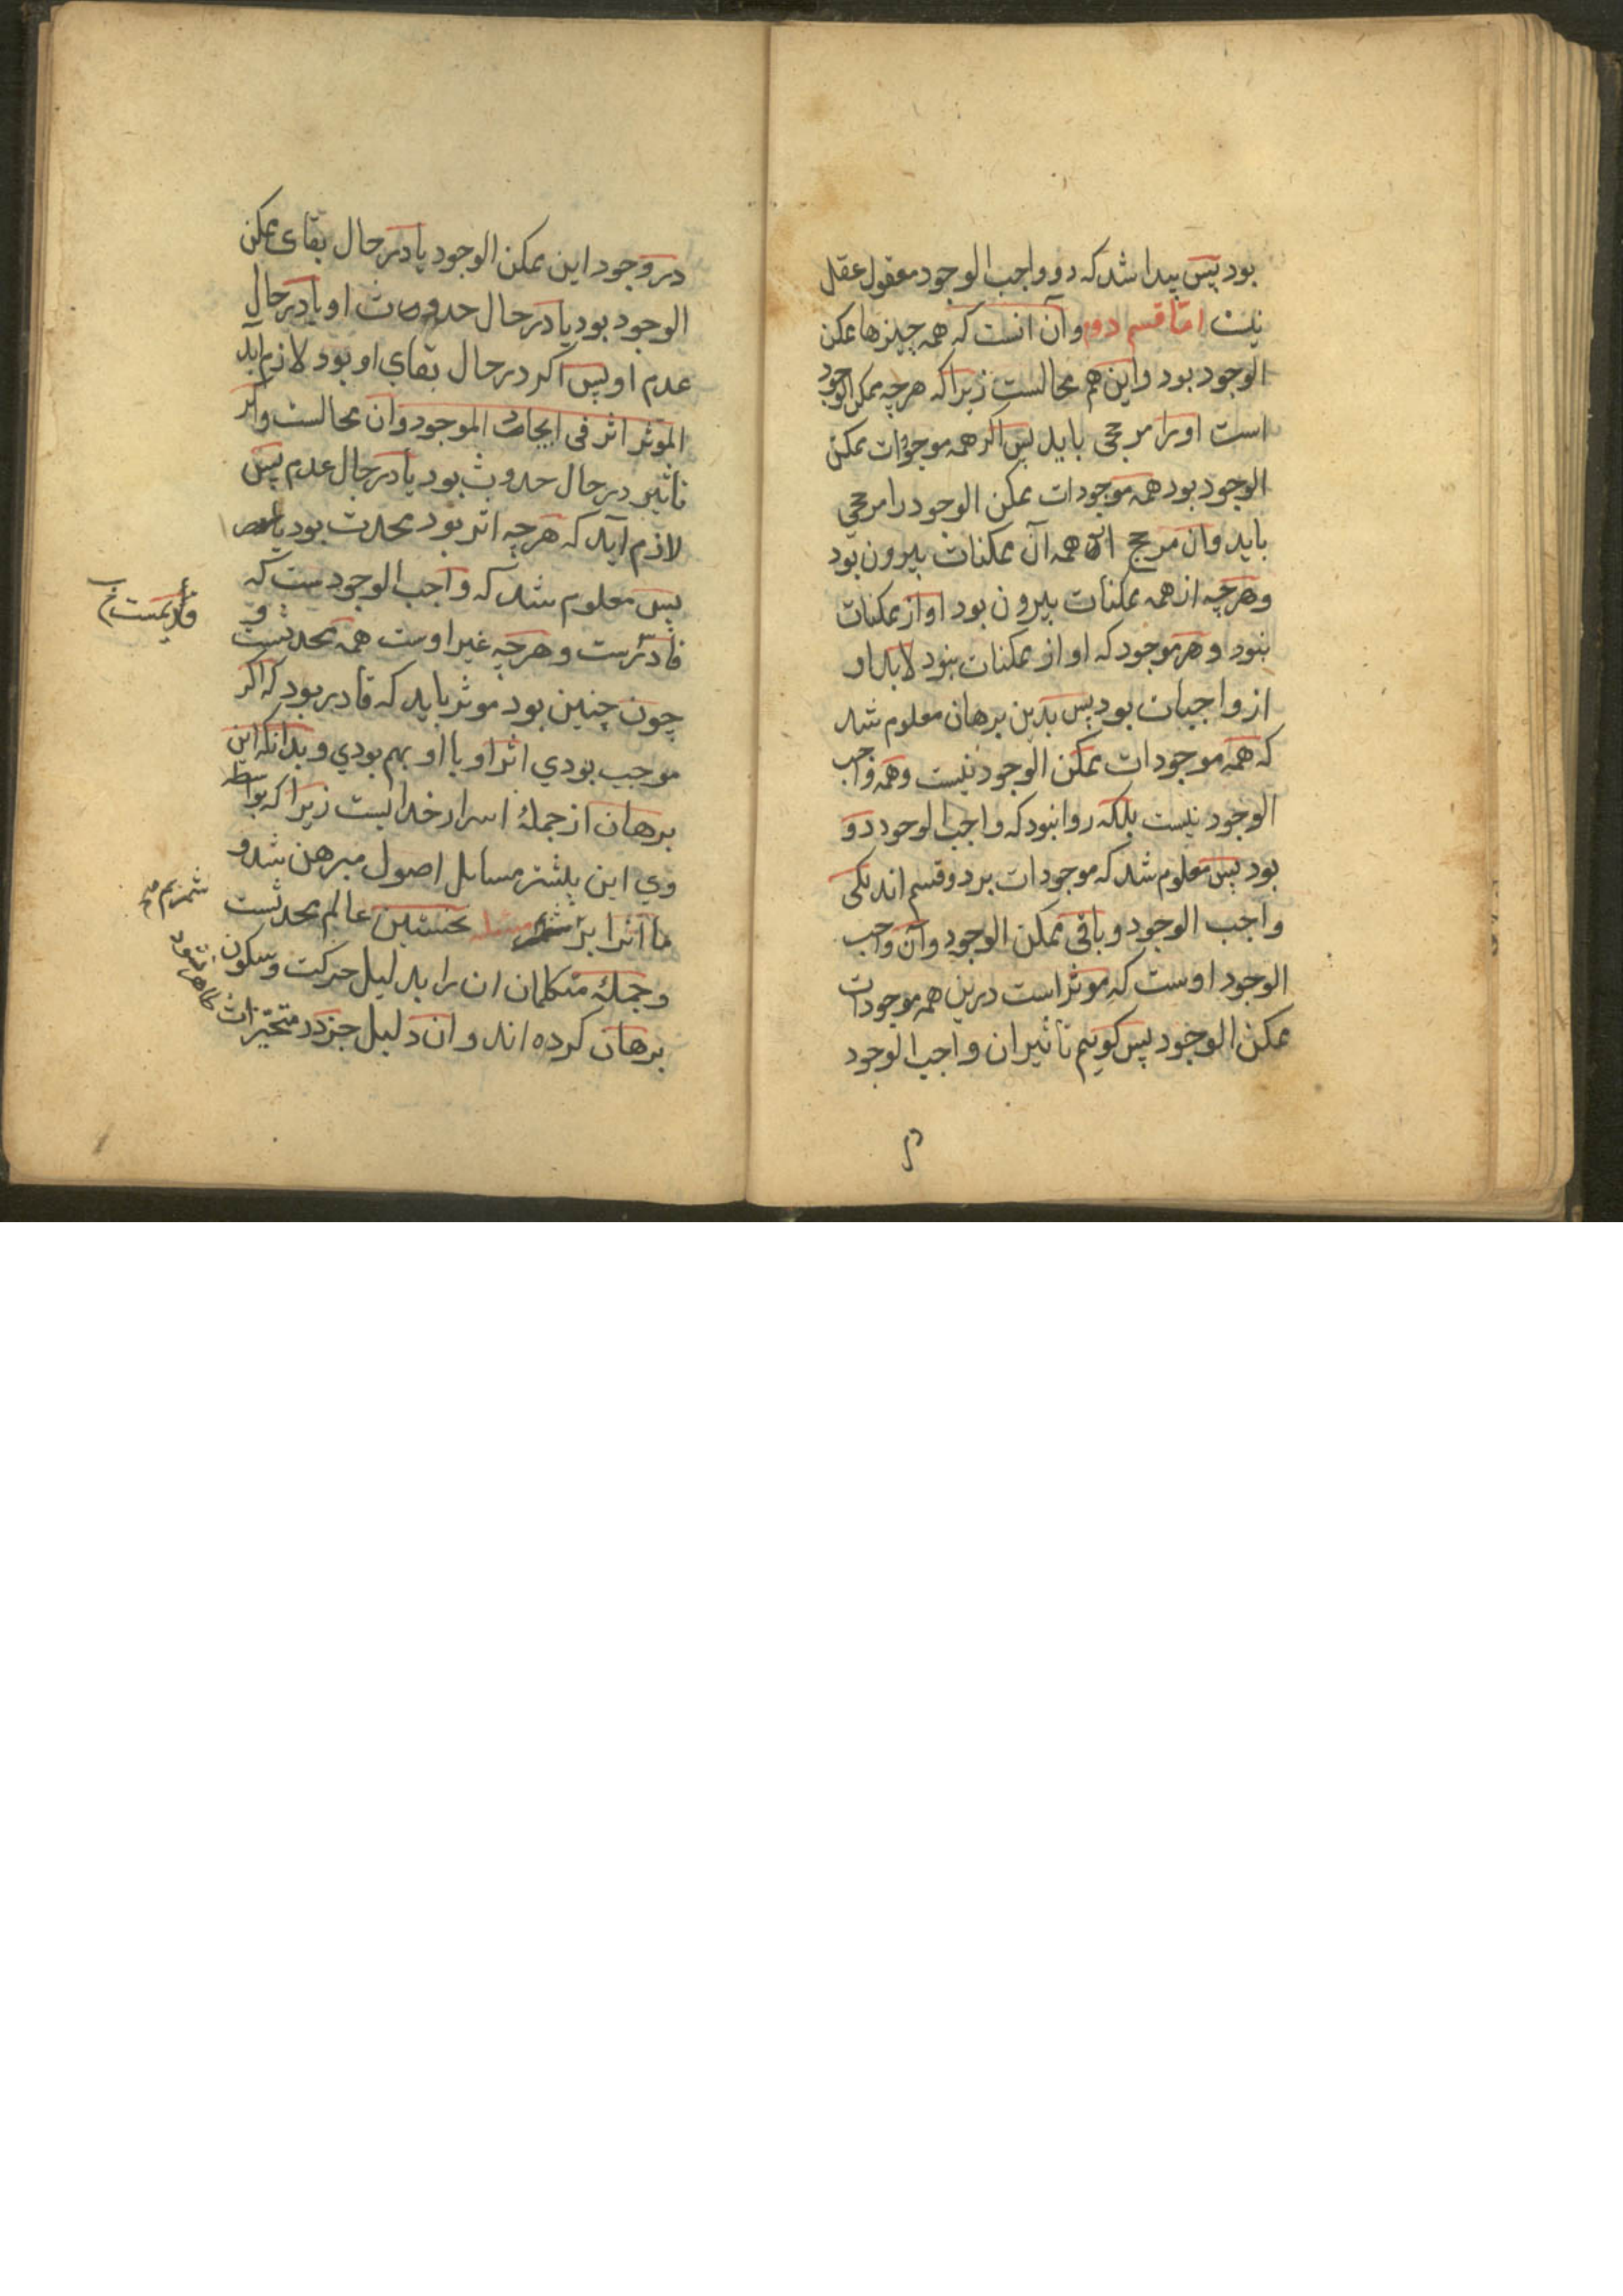 بود پس پیدا شد که دو واجب الوجود معقول عقل
نیست اما قسم دوم و آن انست که همه چیزها ممکن
الوجود بود واین هم محالست زیرا که هرچه ممکن الوجود
است اورا مرجحی باید پس اکر همه موجودات ممکن
الوجود بود همه موجودات ممکن الوجود را مرجحی
باید وان مرجح از همه آن ممکنات بیرون بود
وهرچه از همه ممکنات بیرون بود او از ممکنات
نبود وهر موجود که او از ممکنات نبود لابد او
از واجبات بود پس بدین برهان معلوم شد
که همه موجودات ممکن الوجود نیست وهمه واجب
الوجود نیست بلکه روا نبود که واجب الوجود دو
بود پس معلوم شد که موجودات بر دو قسم اند یکی
واجب الوجود وباقی ممکن الوجود وآن واجب
الوجود اوست که موثر است درین همه موجودات
ممکن الوجود پس کوییم تاثیر ان واجب الوجود
در وجود این ممکن الوجود یا در حال بقای ممکن
الوجود بود یا در حال حدوث او یا در حال
عدم او پس اکر در حال بقای او بود لازم آید
الموثر اثر فی ایجاد الموجود وان محالست واکر
تاثیر در حال حدوث بود یا در حال عدم پس
لازم آید که هرچه اثر بود محدث بود
پس معلوم شد که واجب الوجودست که
قادرست وهرچه غیر اوست همه محدثست و
قدیمست خ
چون چنین بود موثر باید که قادر بود که اکر
موجب بودی اثر او با او بهم بودی وبدانکه این
برهان از جملهٔ اسرار خداییست زیرا که بواسطه
وی این بیشتر مسایل اصول مبرهن شد و
ما انرا بر مسئله نخستین عالم محدثست
وجملهٔ متکلمان ان را بدلیل حرکت وسکون
برهان کرده اند وان دلیل جز در متحیزات
ظاهر نشود